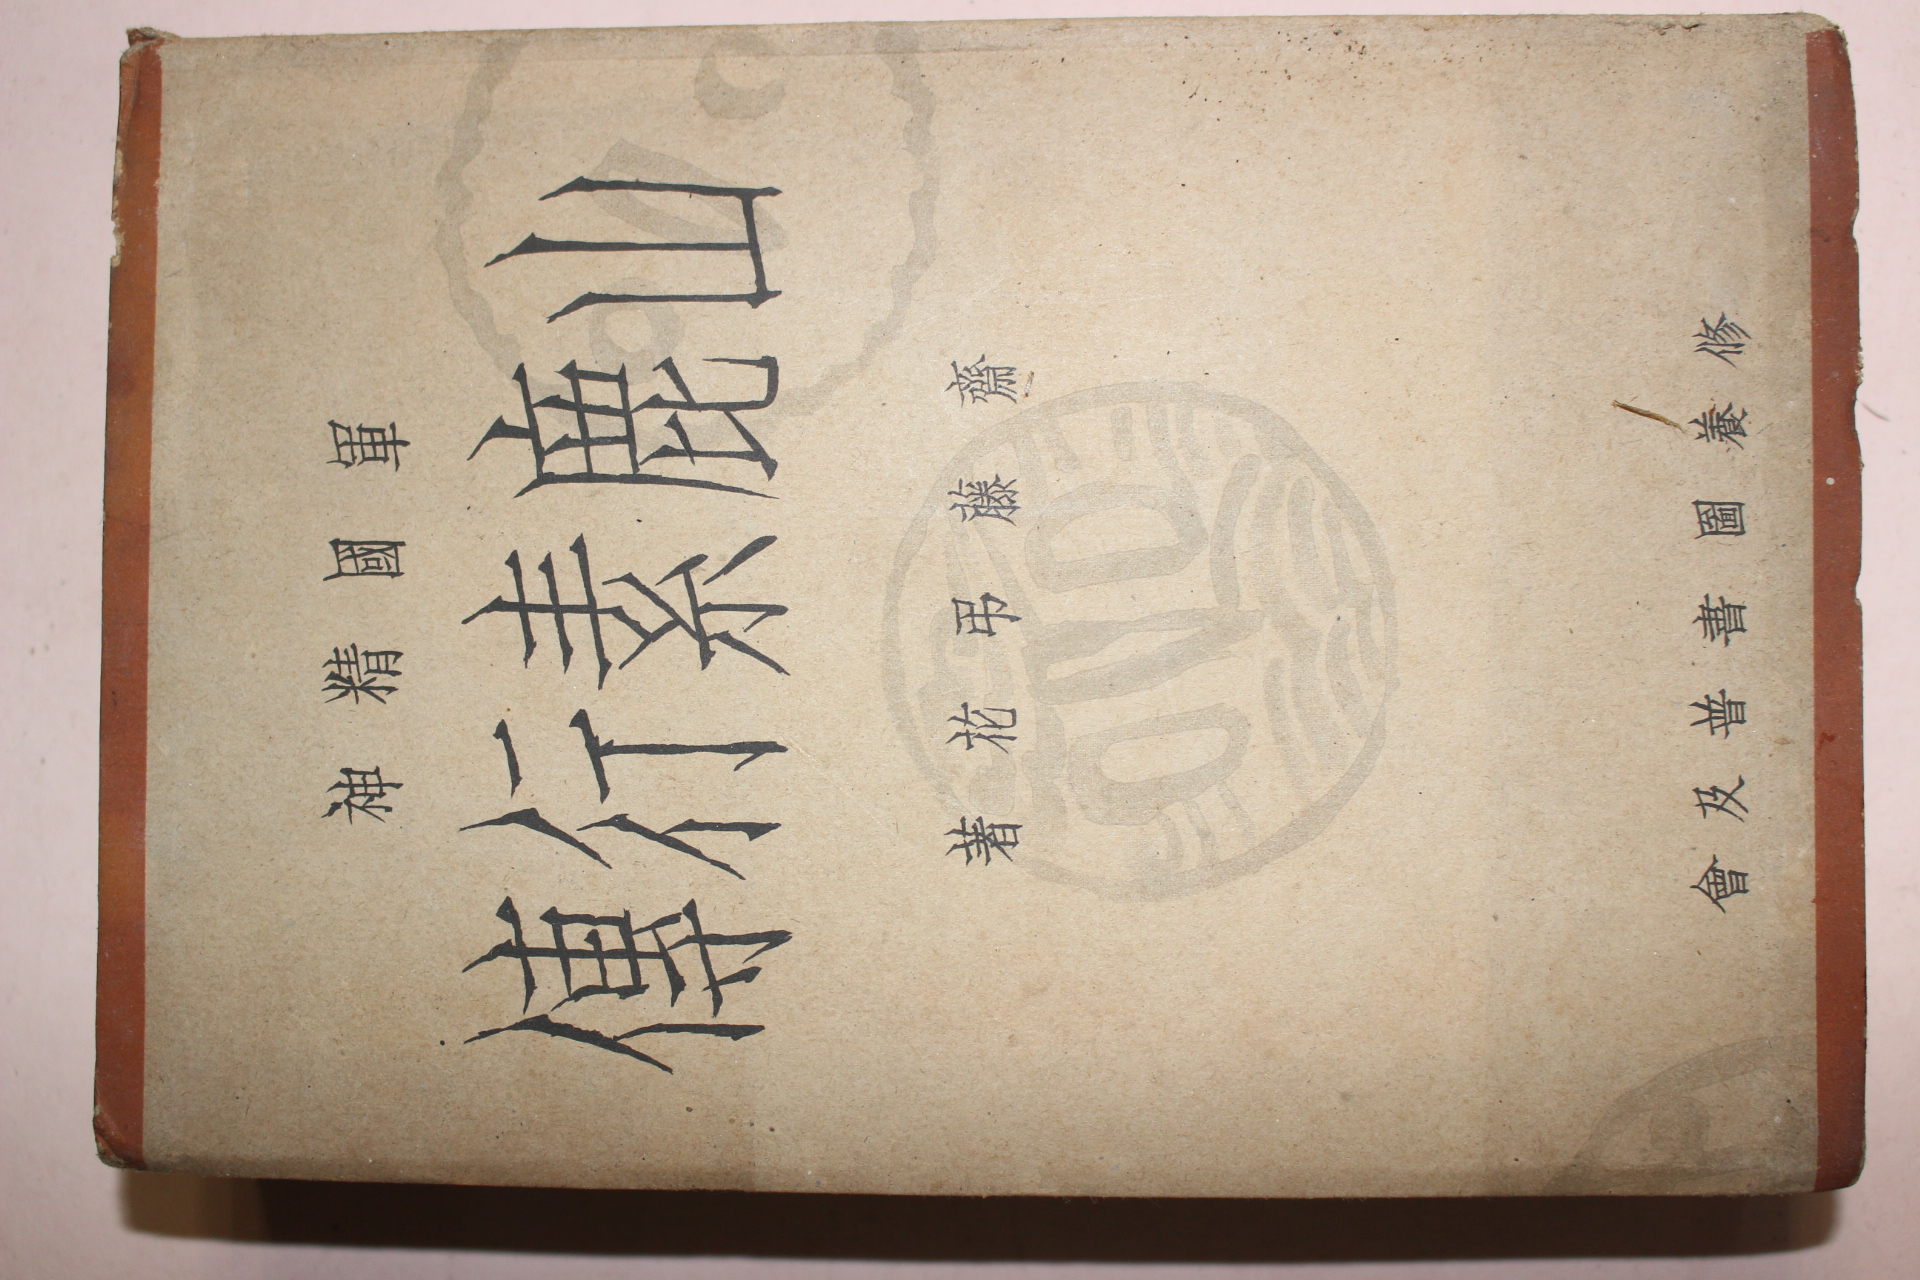 軍國精神
山鹿素行傳
齋藤弔花著
修養圖書普及會